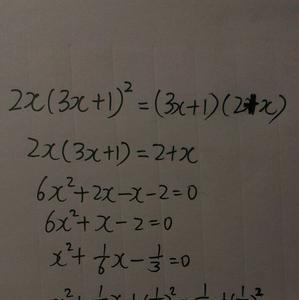 2x(3x+1)²=(3x+1)(2+x)
2x(3x+1)=2+x
6x²+2x-x-2=0
6x²+x-2=0
x²+1/6x-1/3=0